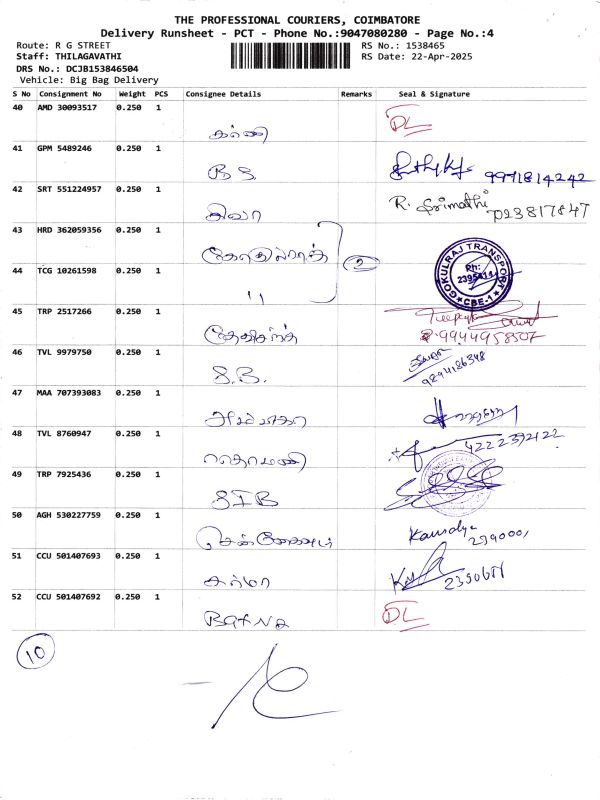 THE PROFESSIONAL COURIERS, COIMBATORE
Delivery Runsheet - PCT - Phone No.:9047080280 - Page No.:4
Route: R G STREET
RS No.: 1538465
Staff: THILAGAVATHI
RS Date: 22-Apr-2025
DRS No.: DCJB153846504
Vehicle: Big Bag Delivery
S No Consignment No Weight PCS Consignee Details Remarks Seal & Signature
40 AMD 30093517 0.250 1 DL
41 GPM 5489246 0.250 1
B S 9971814242
42 SRT 551224957 0.250 1 R. Srimathi
சிவா 7023817847
43 HRD 362059356 0.250 1
கோகுல்ராஜ் 2 GOKULRAJ TRANSPORT Ph: 2395414 CBE-1
44 TCG 10261598 0.250 1
"
45 TRP 2517266 0.250 1
9944958507
46 TVL 9979750 0.250 1
S.B. 9894186348
47 MAA 707393083 0.250 1
48 TVL 8760947 0.250 1 4222392122
49 TRP 7925436 0.250 1
SIB
50 AGH 530227759 0.250 1 Kausalya
51 CCU 501407693 0.250 1
52 CCU 501407692 0.250 1 DL
10